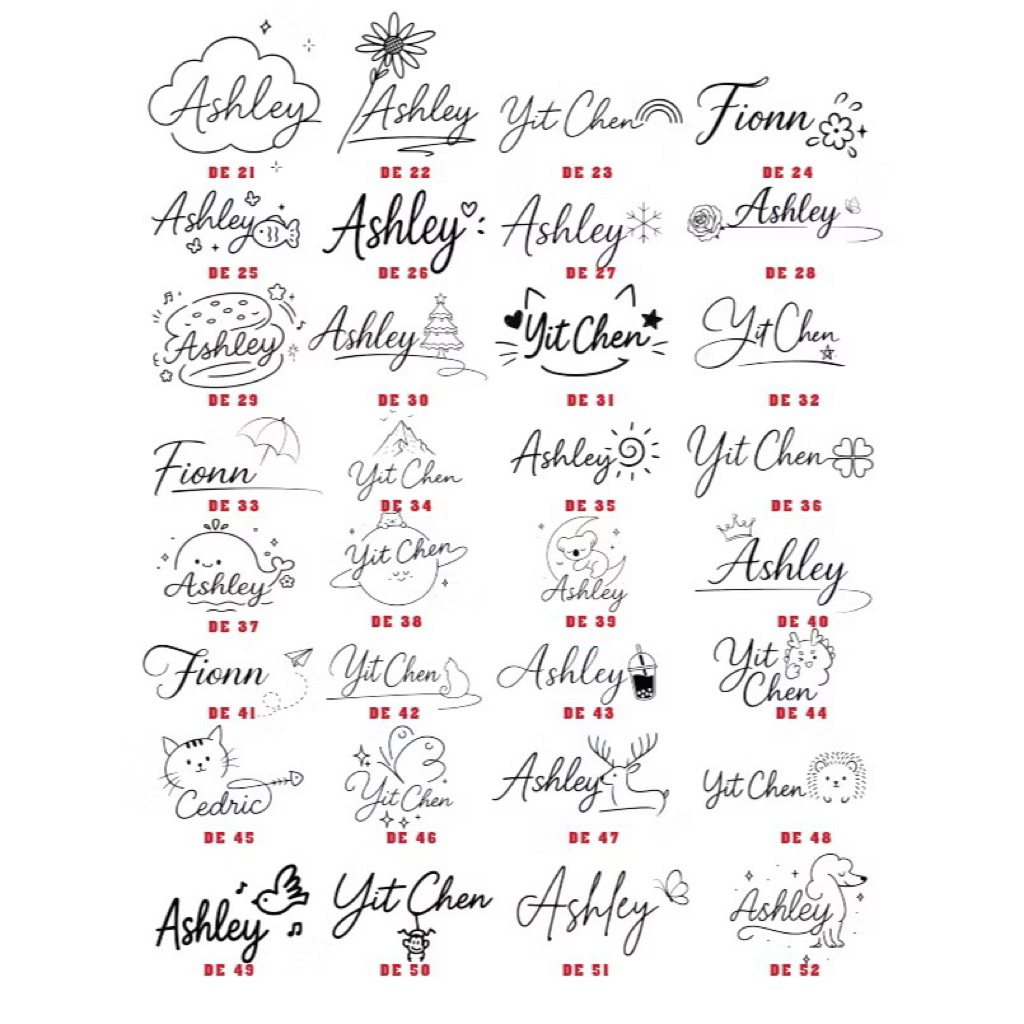 Ashley Ashley Yit Chen Fionn
DE 21 DE 22 DE 23 DE 24
Ashley Ashley Ashley Ashley
DE 25 DE 26 DE 27 DE 28
Ashley Ashley Yit Chen Yit Chen
DE 29 DE 30 DE 31 DE 32
Fionn Yit Chen Ashley Yit Chen
DE 33 DE 34 DE 35 DE 36
Ashley Yit Chen Ashley Ashley
DE 37 DE 38 DE 39 DE 40
Fionn Yit Chen Ashley Yit
Chen
DE 41 DE 42 DE 43 DE 44
Cedric Yit Chen Ashley Yit Chen
DE 45 DE 46 DE 47 DE 48
Ashley Yit Chen Ashley Ashley
DE 49 DE 50 DE 51 DE 52